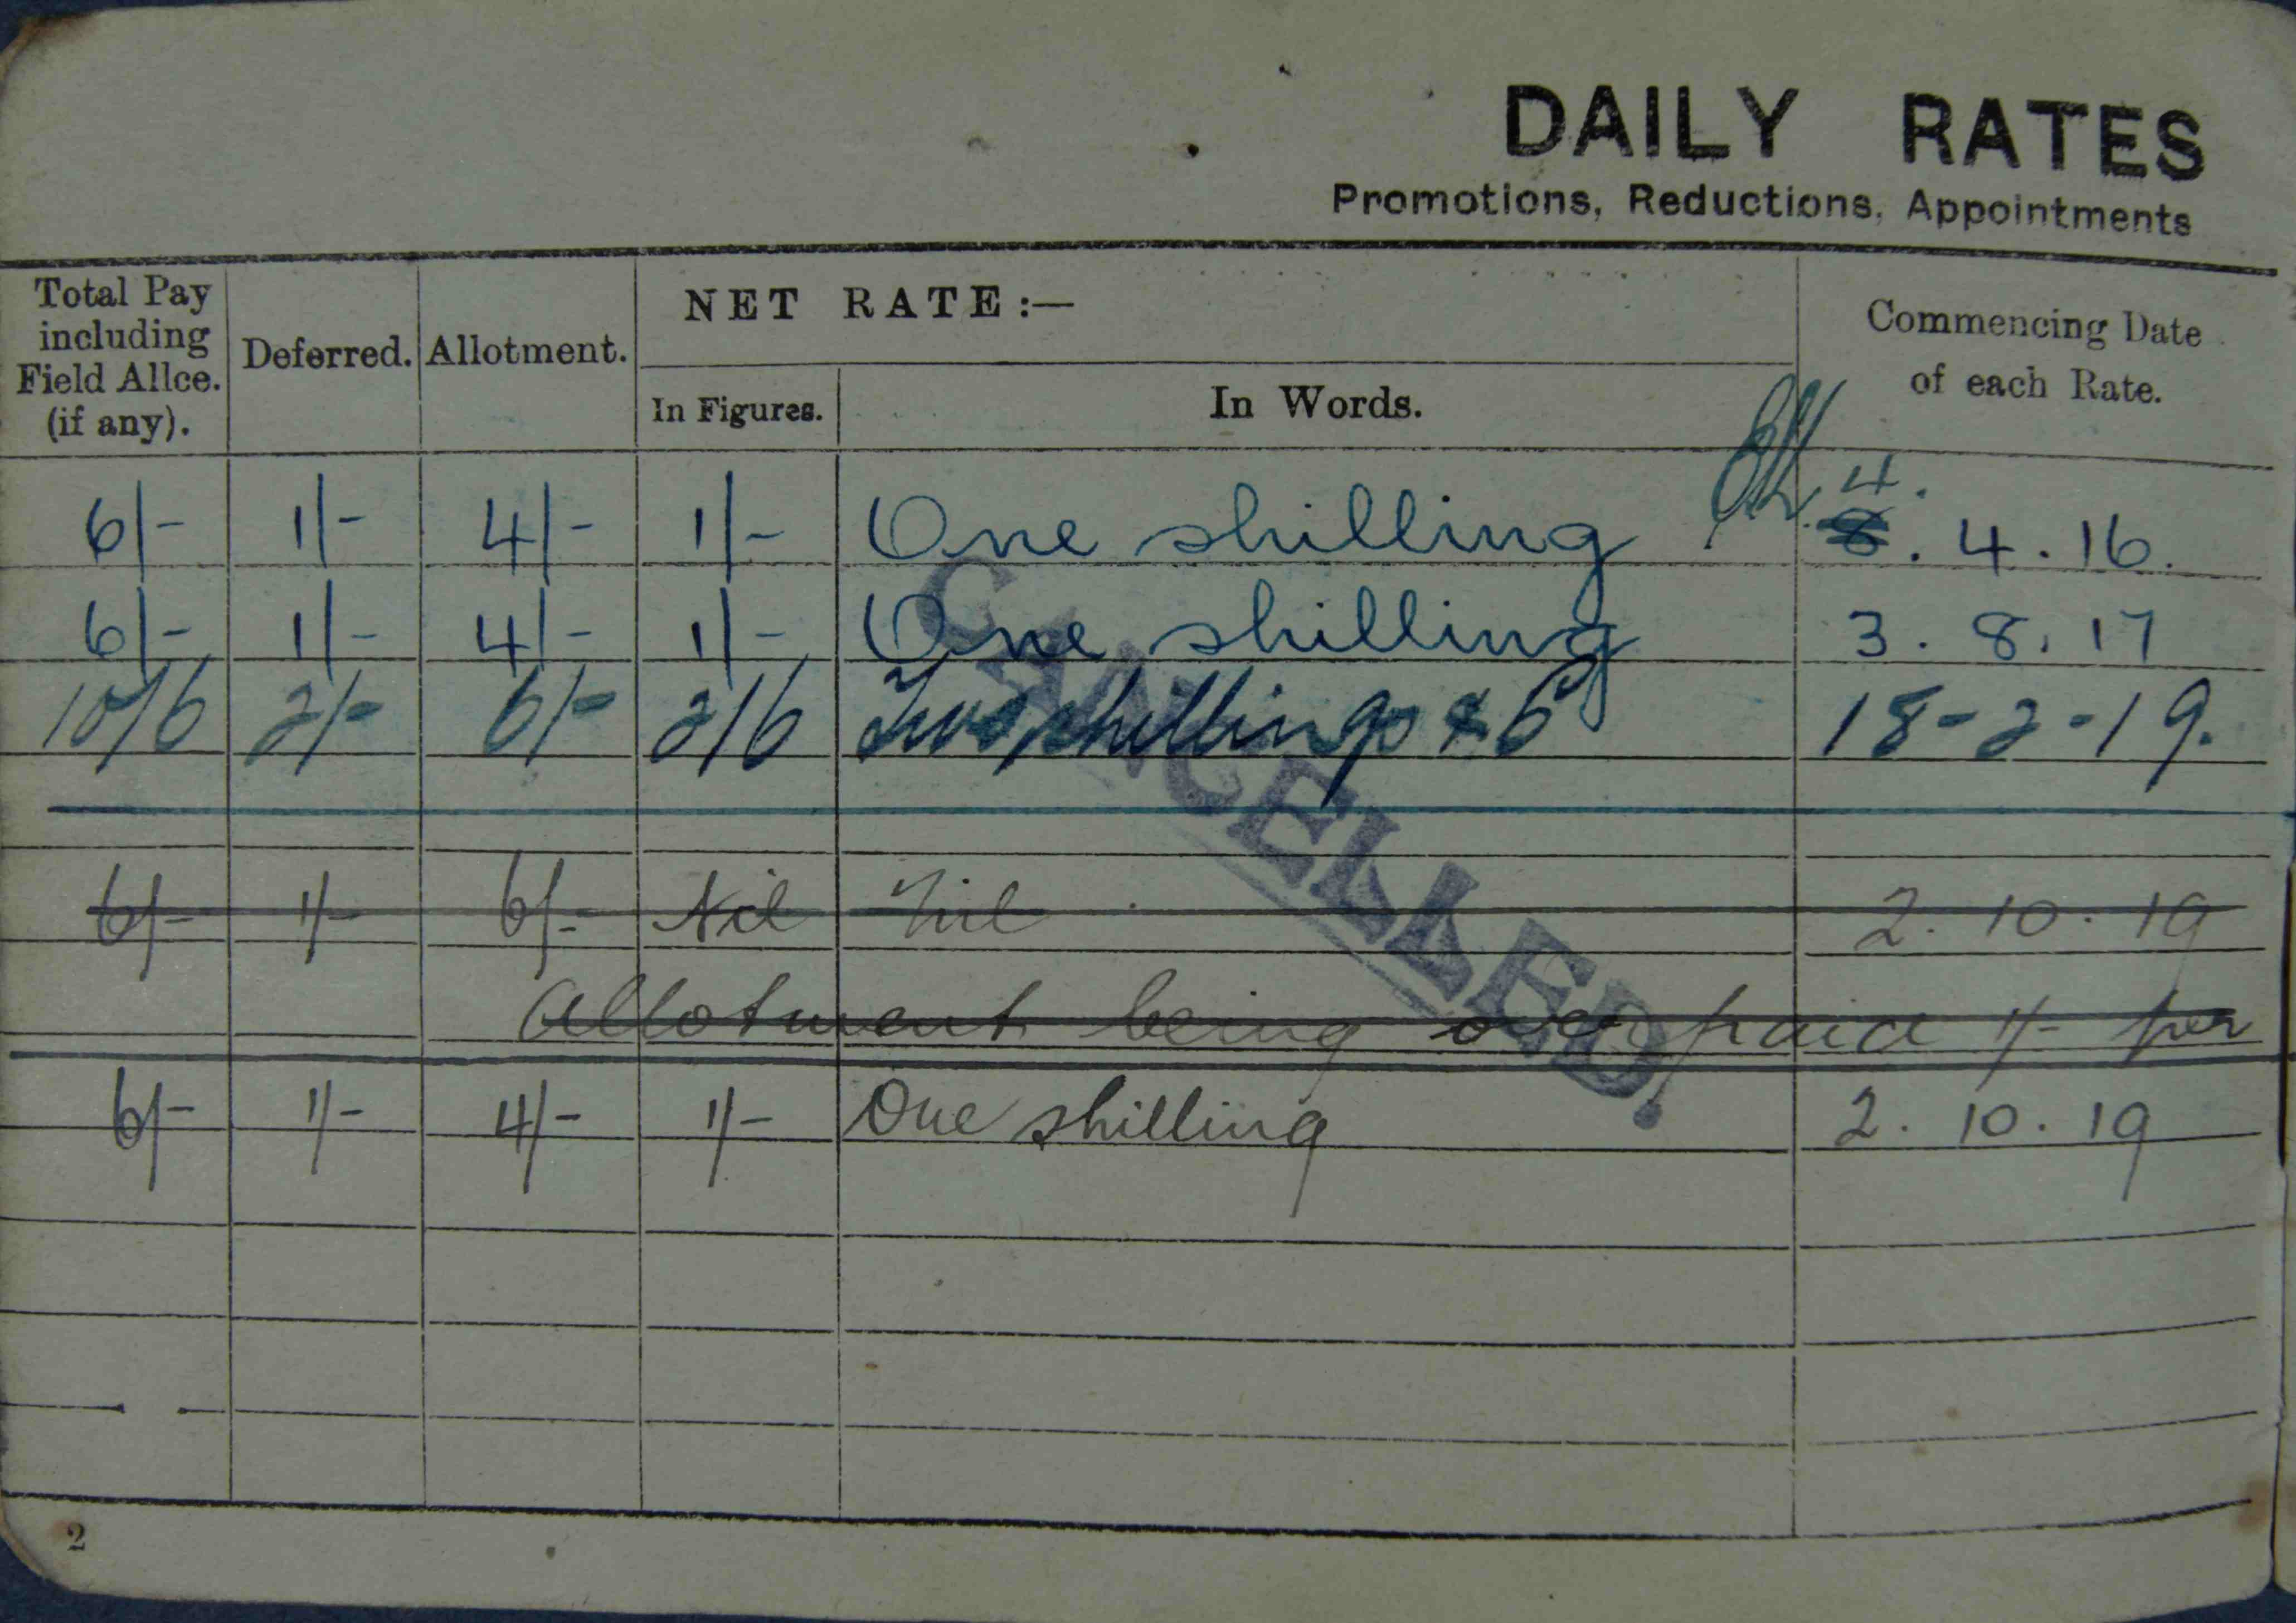 DAILY RATES
Promotions, Reductions, Appointments
Total Pay including Field Allce. (if any).
Deferred.
Allotment.
NET RATE:—
In Figures.
In Words.
Commencing Date of each Rate.
4.
6/- 1/- 4/- 1/- One shilling 8. 4. 16.
6/- 1/- 4/- 1/- One shilling 3. 8. 17
10/6 2/- 6/- 2/6 Two shillings & 6 18-2-19.
6/- 1/- 6/- Nil Nil 2. 10. 19
Allotment being over paid 1/- per
6/- 1/- 4/- 1/- One shilling 2. 10. 19
CANCELLED.
2